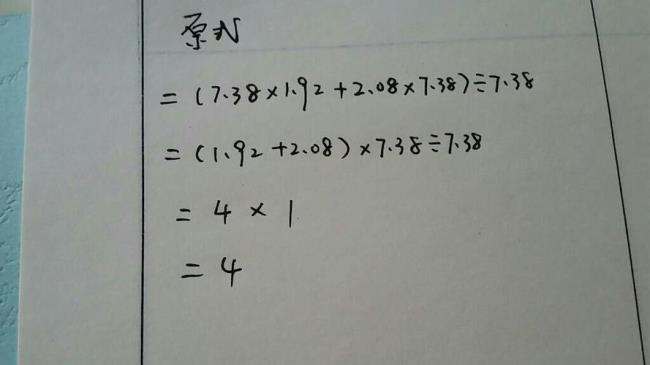 原式
= (7.38×1.92+2.08×7.38)÷7.38
= (1.92+2.08)×7.38÷7.38
= 4×1
= 4